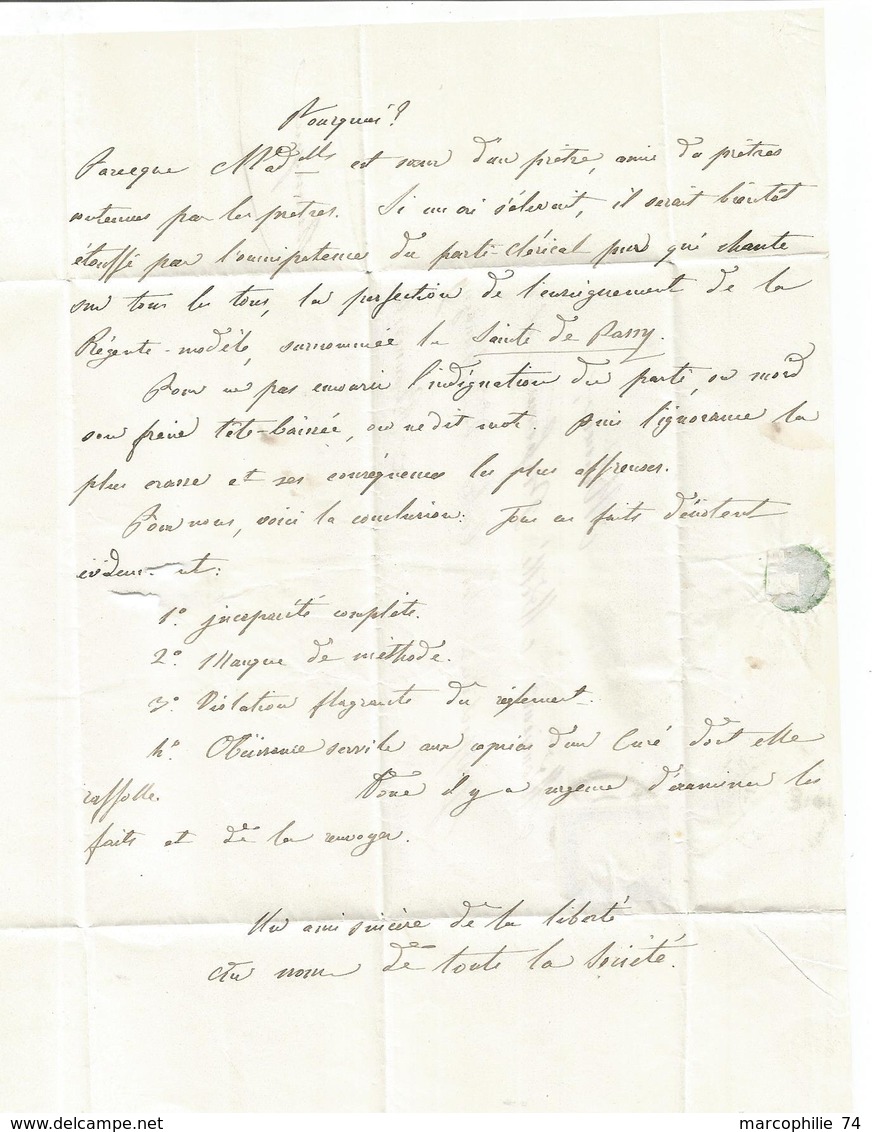 Pourquoi?
Parceque Mad^elle est sœur d'un prêtre, amie de prêtres
soutenues par les prêtres. Si un cri s'élevait, il serait bientôt
étouffé par l'omnipotence du parti-clérical pur qui chante
sur tous les tons, la perfection de l'enseignement de la
Régente-modèle, surnommée la Sainte de Passy.
Pour ne pas encourir l'indignation du parti, on mord
son frein tête-baissée, on ne dit mot. puis l'ignorance la
plus crasse et ses conséquences les plus affreuses.
Pour nous, voici la conclusion: Tous ces faits dénotent
évidem nt:
1° incapacité complète.
2° Manque de méthode.
3° Violation flagrante du règlement.
4° Obéissance servile aux caprices d'un Curé dont elle
raffolle. Donc il y a urgence d'examiner les
faits et de la renvoyer.
Un ami sincère de la liberté
Au nom de toute la Société.
marcophilie 74